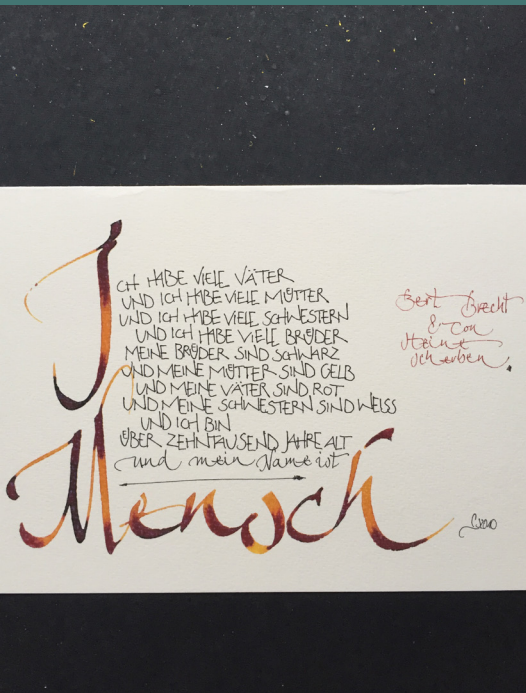 ICH HABE VIELE VÄTER
UND ICH HABE VIELE MÜTTER
UND ICH HABE VIELE SCHWESTERN
UND ICH HABE VIELE BRÜDER
MEINE BRÜDER SIND SCHWARZ
UND MEINE MÜTTER SIND GELB
UND MEINE VÄTER SIND ROT
UND MEINE SCHWESTERN SIND WEISS
UND ICH BIN
ÜBER ZEHNTAUSEND JAHRE ALT
und mein Name ist
Mensch
Bert Brecht
&
Steine
scherben